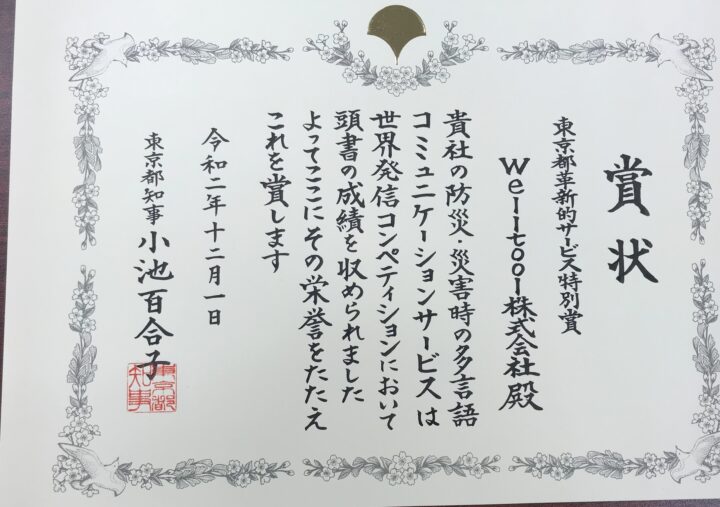 賞状
東京都革新的サービス特別賞
Welltool株式会社殿
貴社の防災・災害時の多言語
コミュニケーションサービスは
世界発信コンペティションにおいて
頭書の成績を収められました
よってここにその栄誉をたたえ
これを賞します
令和二年十二月一日
東京都知事 小池百合子
東京都
知事